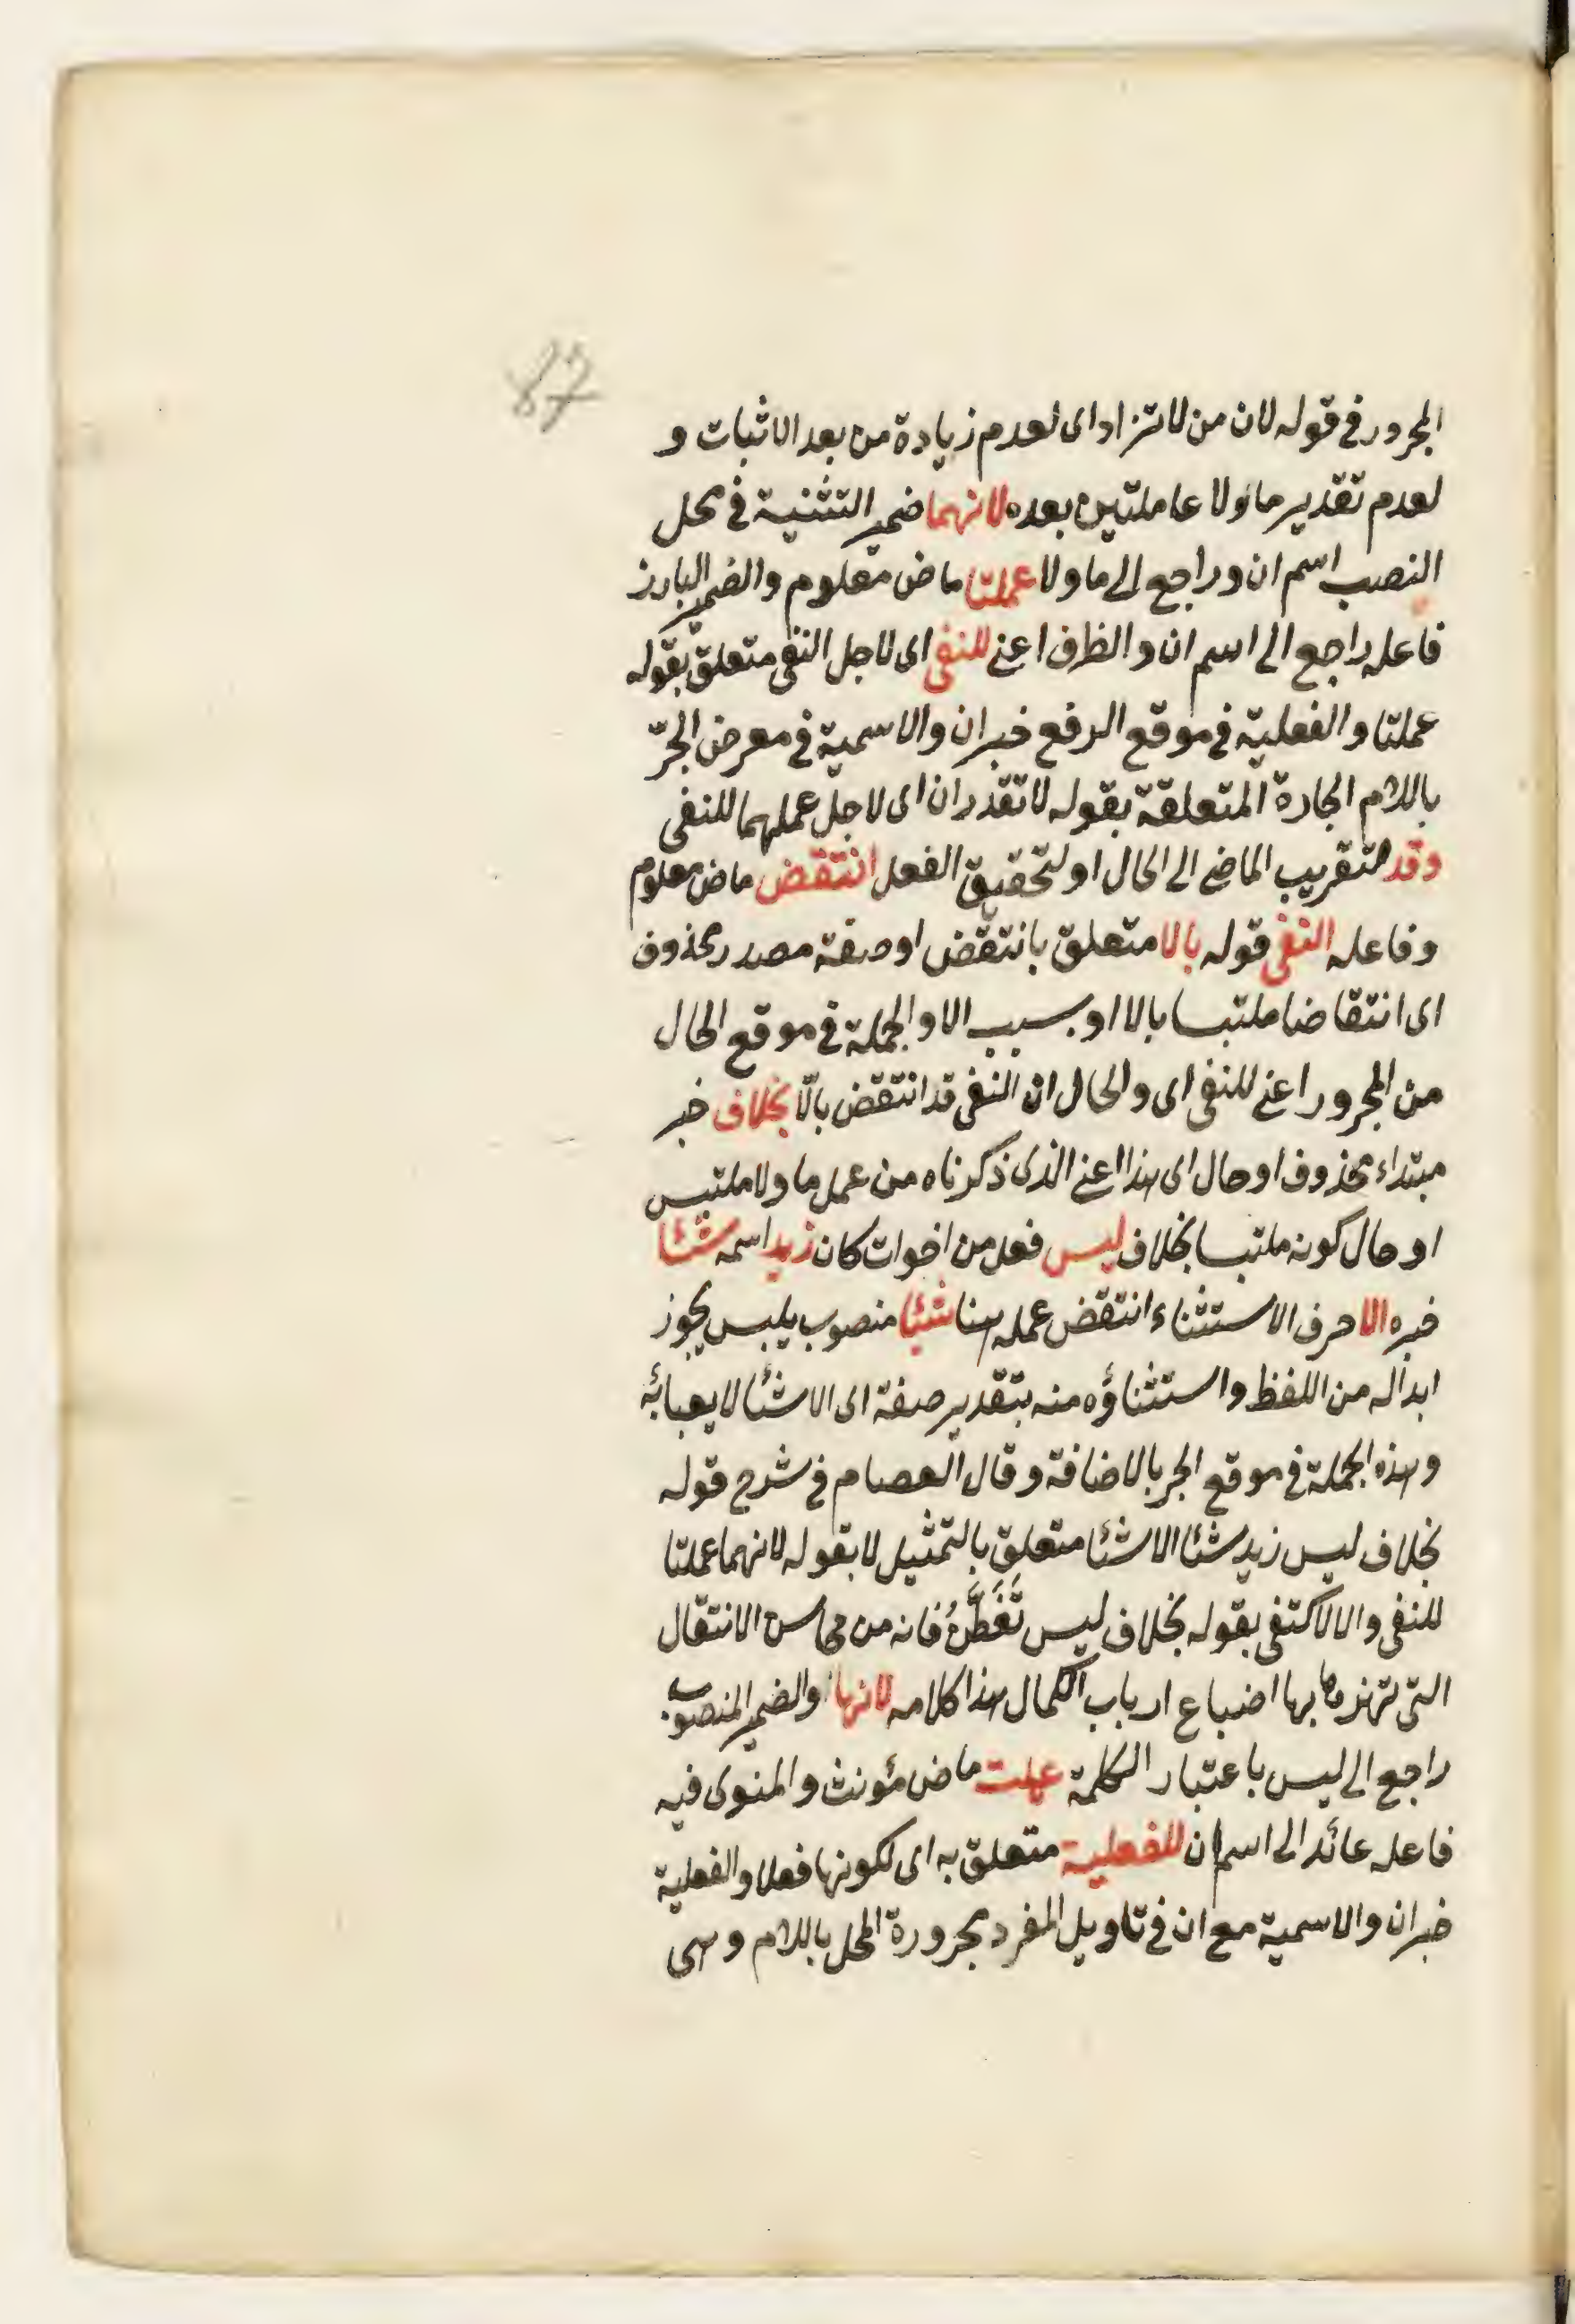 87
المجرور في قوله لان من لا تزاد اى لعدم زيادة من بعد الاثبات و
لعدم تقدير ما ولا عاملتين بعده لانهما ضمير التثنية في محل
النصب اسم ان وراجع الى ما ولا عملتا ماض معلوم والضمير البارز
فاعله راجع الى اسم ان والظرف اعنى للنفى اى لاجل النفى متعلق بقوله
عملتا والفعلية في موقع الرفع خبر ان والاسمية في معرض الجرّ
باللام الجارة المتعلقة بقوله لا تقدران اى لاجل عملهما للنفى
وقد لتقريب الماضى الى الحال او لتحقيق الفعل انتقض ماض معلوم
وفاعله النفى قوله بالا متعلق بانتقض او صفة مصدر محذوف
اى انتقاضا ملتبسا بالا او بسبب الا والجملة في موقع الحال
من المجرور اعنى للنفى اى والحال ان النفى قد انتقض بالّا بخلاف خبر
مبتداء محذوف او حال اى هذا اعنى الذى ذكرناه من عمل ما ولا ملتبس
او حال كونه ملتبسا بخلاف ليس فعل من اخوات كان زيد اسمه شئا
خبره الا حرف الاستثناء انتقض عمله هنا شئا منصوب بليس يجوز
ابداله من اللفظ واستثناؤه منه بتقدير صفة اى الا شئا لا يعبأ به
وهذه الجملة في موقع الجر بالاضافة وقال العصام في شرح قوله
بخلاف ليس زيد شئا الا شئا متعلق بالتمثيل لا بقوله لانهما عملتا
للنفى والا لاكتفى بقوله بخلاف ليس تَفَطَّنْ فانه من محاسن الانتقال
التى تهتز بها اضباع ارباب الكمال هذا كلامه لانها والضمير المنصوب
راجع الى ليس باعتبار الكلمة عملت ماض مؤنث والمنوى فيه
فاعله عائد الى اسم ان للفعلية متعلق به اى لكونها فعلا والفعلية
خبر ان والاسمية مع ان في تاويل المفرد مجرورة المحل باللام وهى